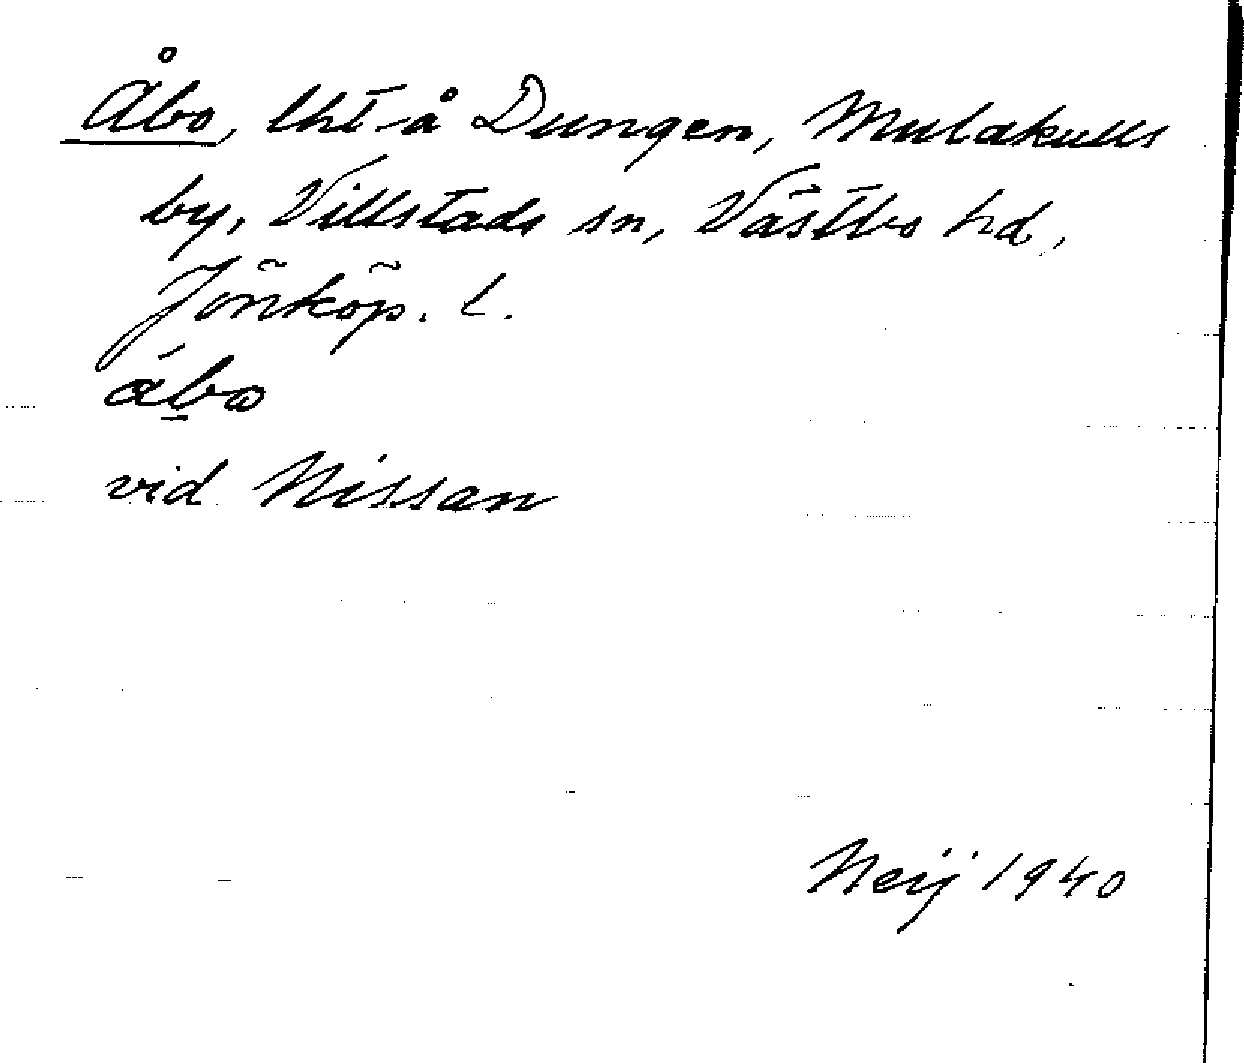 Åbo, lht å Dungen, Mulakulls
by, Villstads sn, Västbo hd,
Jönköp. l.
åbo
vid Nissan
Neij 1940